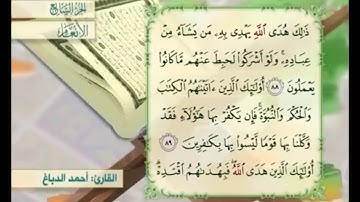 الجزء السابع
الأنعام
ذَٰلِكَ هُدَى اللَّهِ يَهْدِي بِهِ مَن يَشَاءُ مِنْ
عِبَادِهِ ۚ وَلَوْ أَشْرَكُوا لَحَبِطَ عَنْهُم مَّا كَانُوا
يَعْمَلُونَ ٨٨ أُولَٰئِكَ الَّذِينَ آتَيْنَاهُمُ الْكِتَابَ
وَالْحُكْمَ وَالنُّبُوَّةَ ۚ فَإِن يَكْفُرْ بِهَا هَٰؤُلَاءِ فَقَدْ
وَكَّلْنَا بِهَا قَوْمًا لَّيْسُوا بِهَا بِكَافِرِينَ ٨٩
أُولَٰئِكَ الَّذِينَ هَدَى اللَّهُ ۖ فَبِهُدَاهُمُ اقْتَدِهْ ۗ
القارئ: أحمد الدباغ